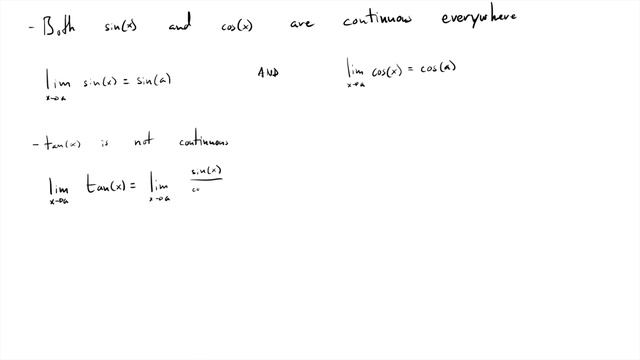 - Both sin(x) and cos(x) are continuous everywhere
lim x→a sin(x) = sin(a) AND lim x→a cos(x) = cos(a)
- tan(x) is not continuous
lim x→a tan(x) = lim x→a sin(x)/co